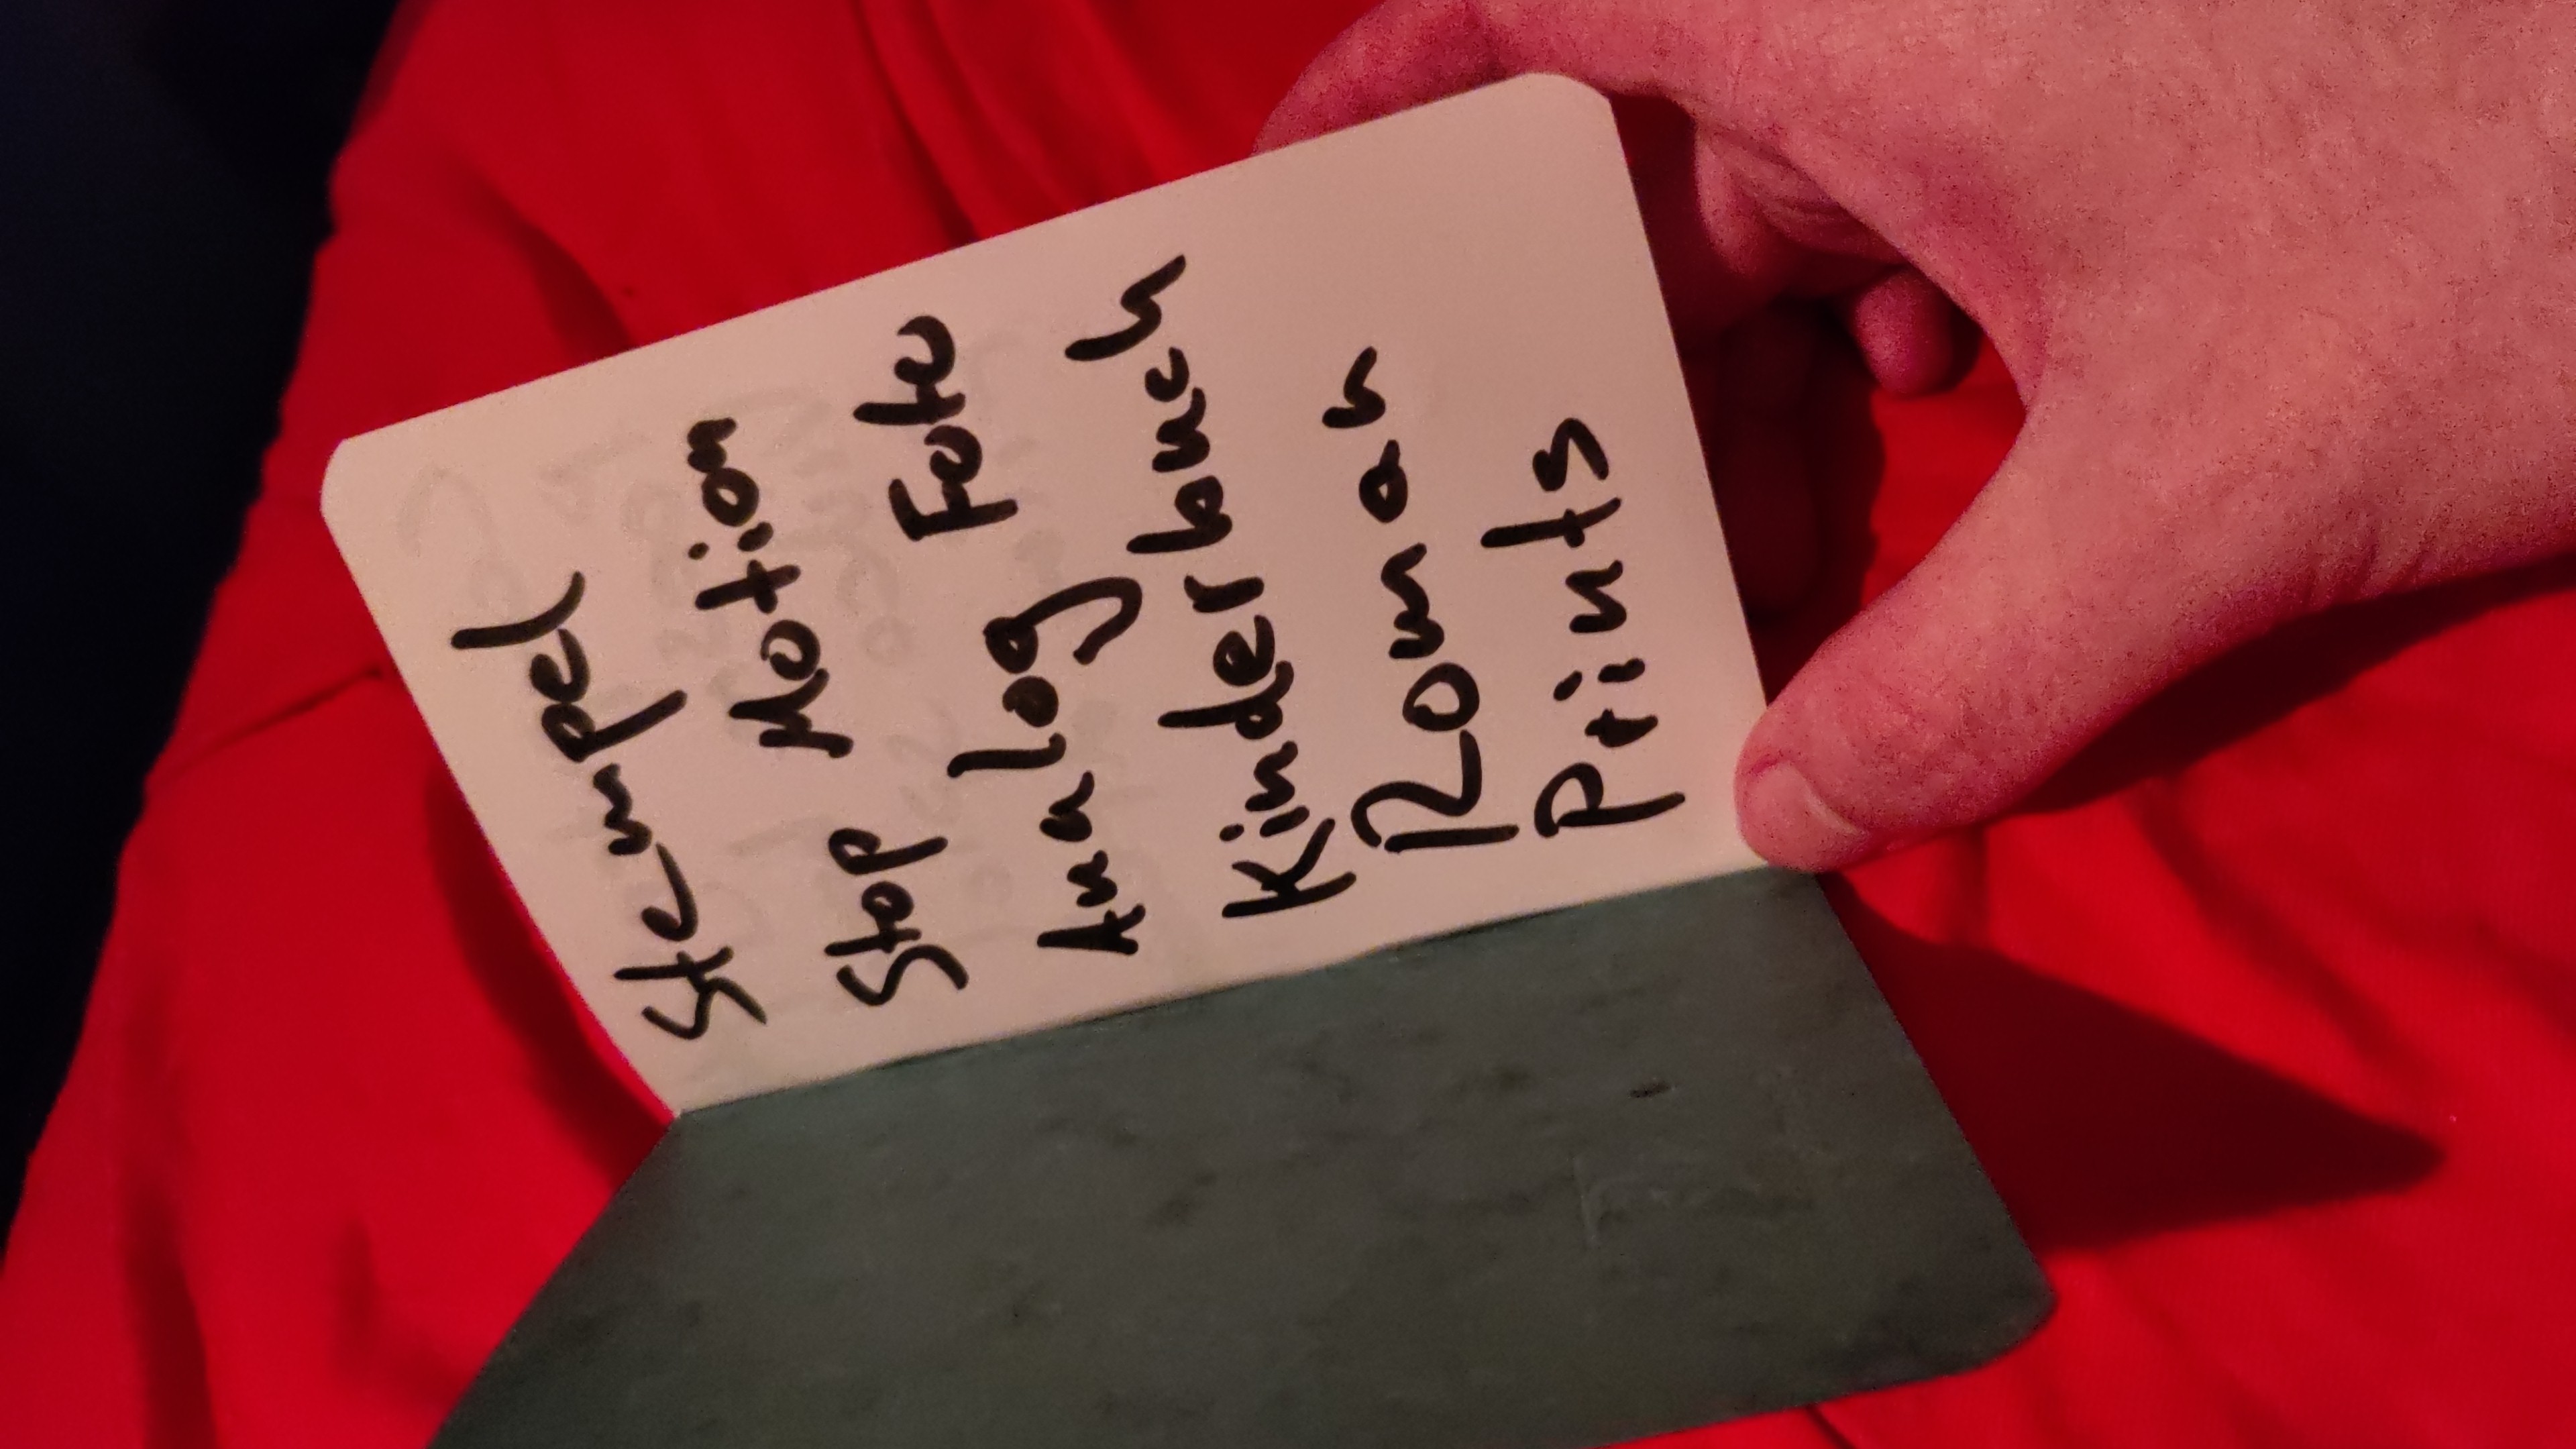 Stempel
Stop Motion
Analog Foto
Kinderbuch
Roman
Prints